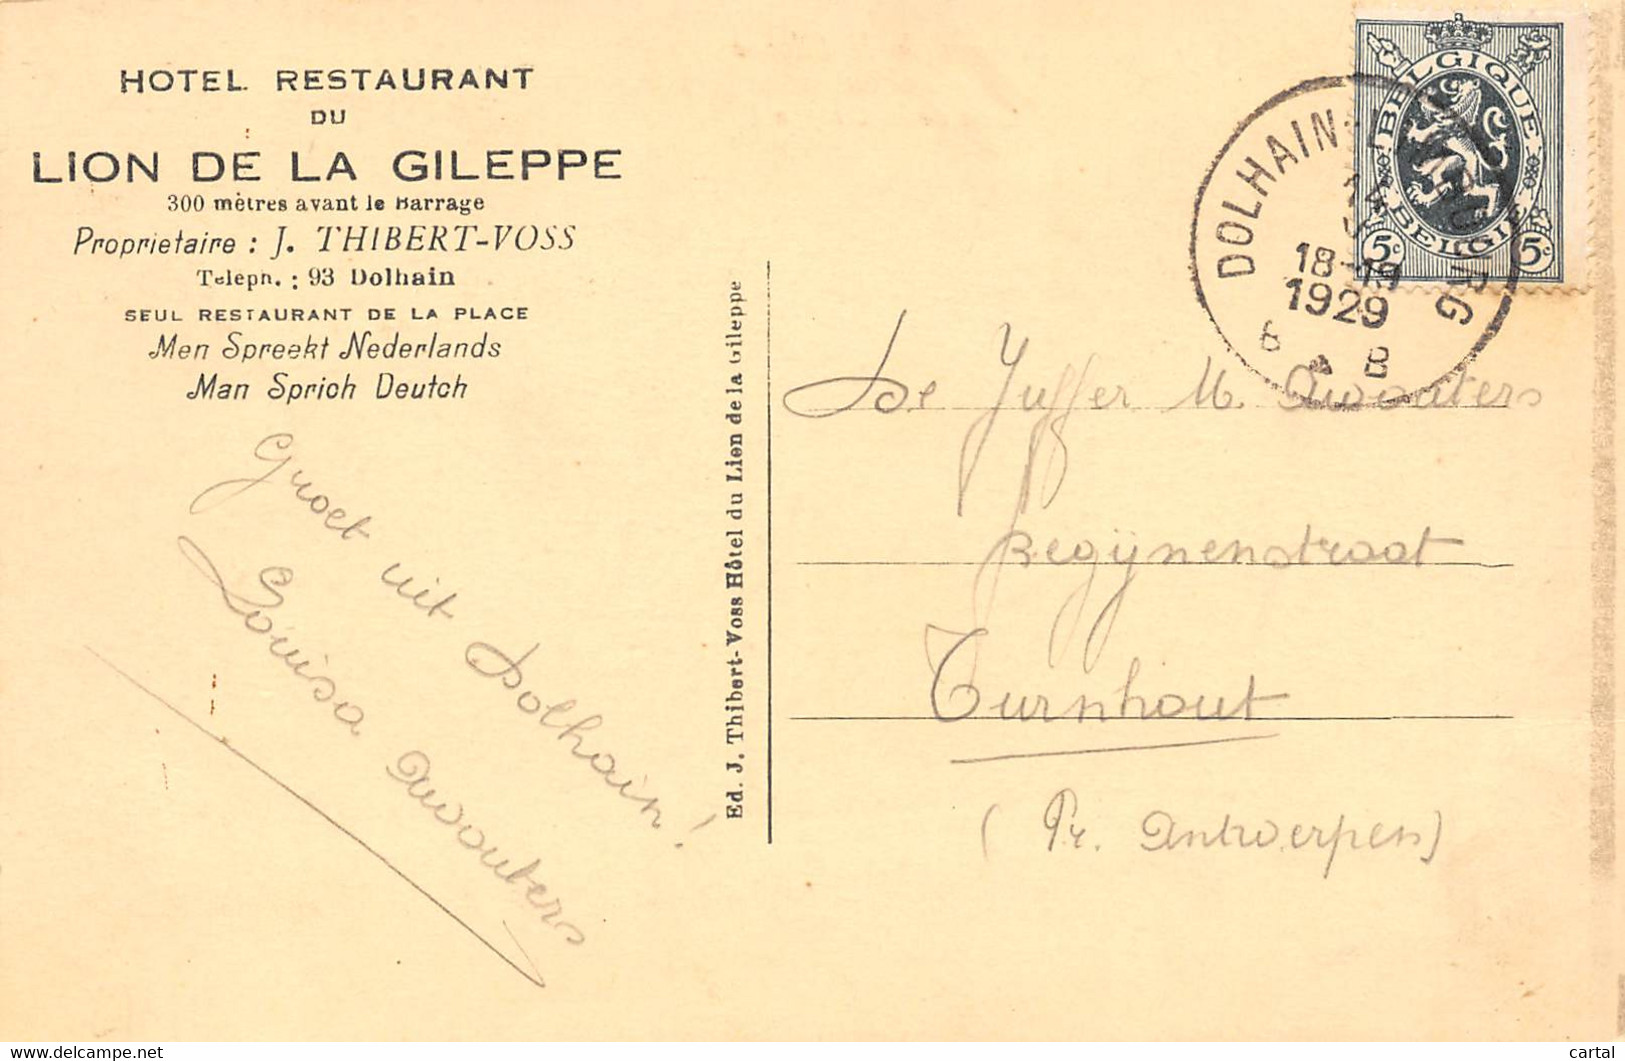 HOTEL RESTAURANT
DU
LION DE LA GILEPPE
300 mètres avant le Barrage
Proprietaire : J. THIBERT-VOSS
Teleph. : 93 Dolhain
SEUL RESTAURANT DE LA PLACE
Men Spreekt Nederlands
Man Sprich Deutch
Groet uit Dolhain!
Louisa Awouters
Ed. J. Thibert-Voss Hôtel du Lion de la Gileppe
BELGIQUE
BELGIË
5c 5c
DOLHAIN
18-19
1929
B B
De Juffer M. Awouters
Begijnenstraat
Turnhout
(Pr. Antwerpen)
www.delcampe.net
cartal